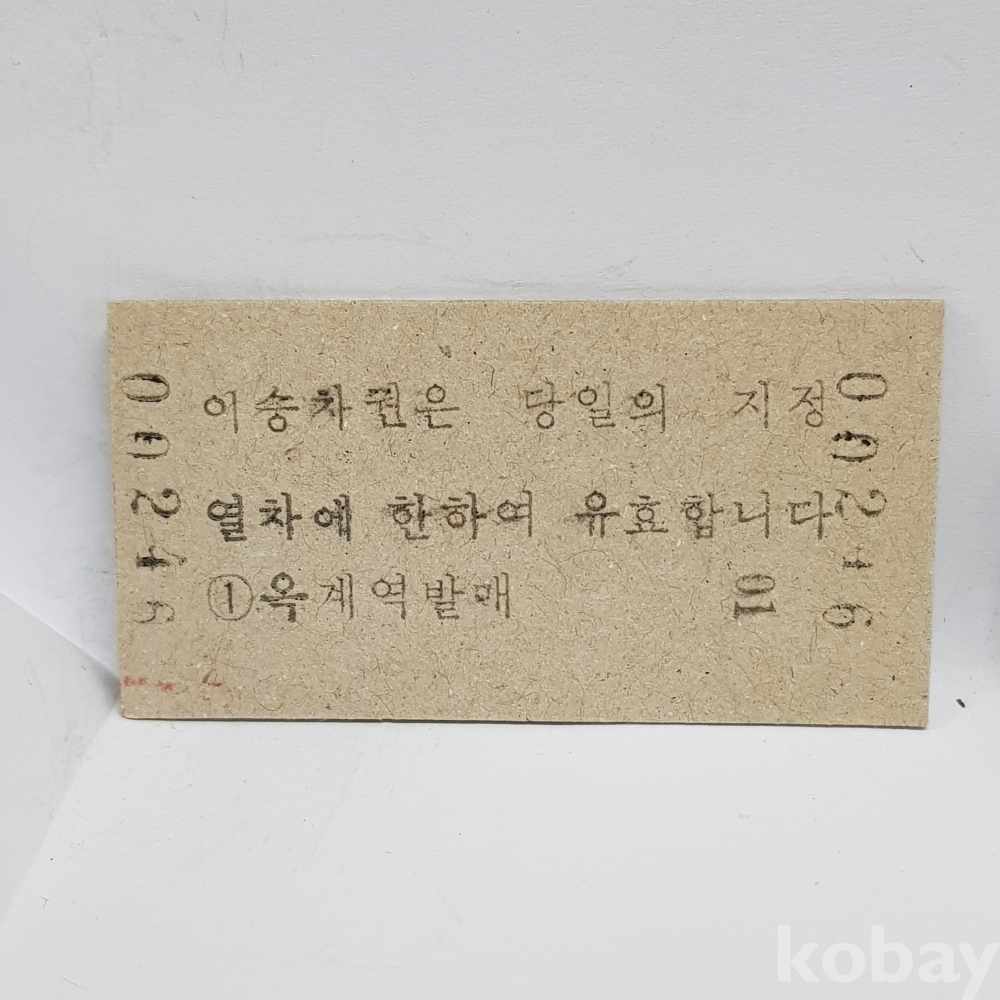 00246
이승차권은 당일의 지정
열차에 한하여 유효합니다
①옥계역발매 01
00246
kobay